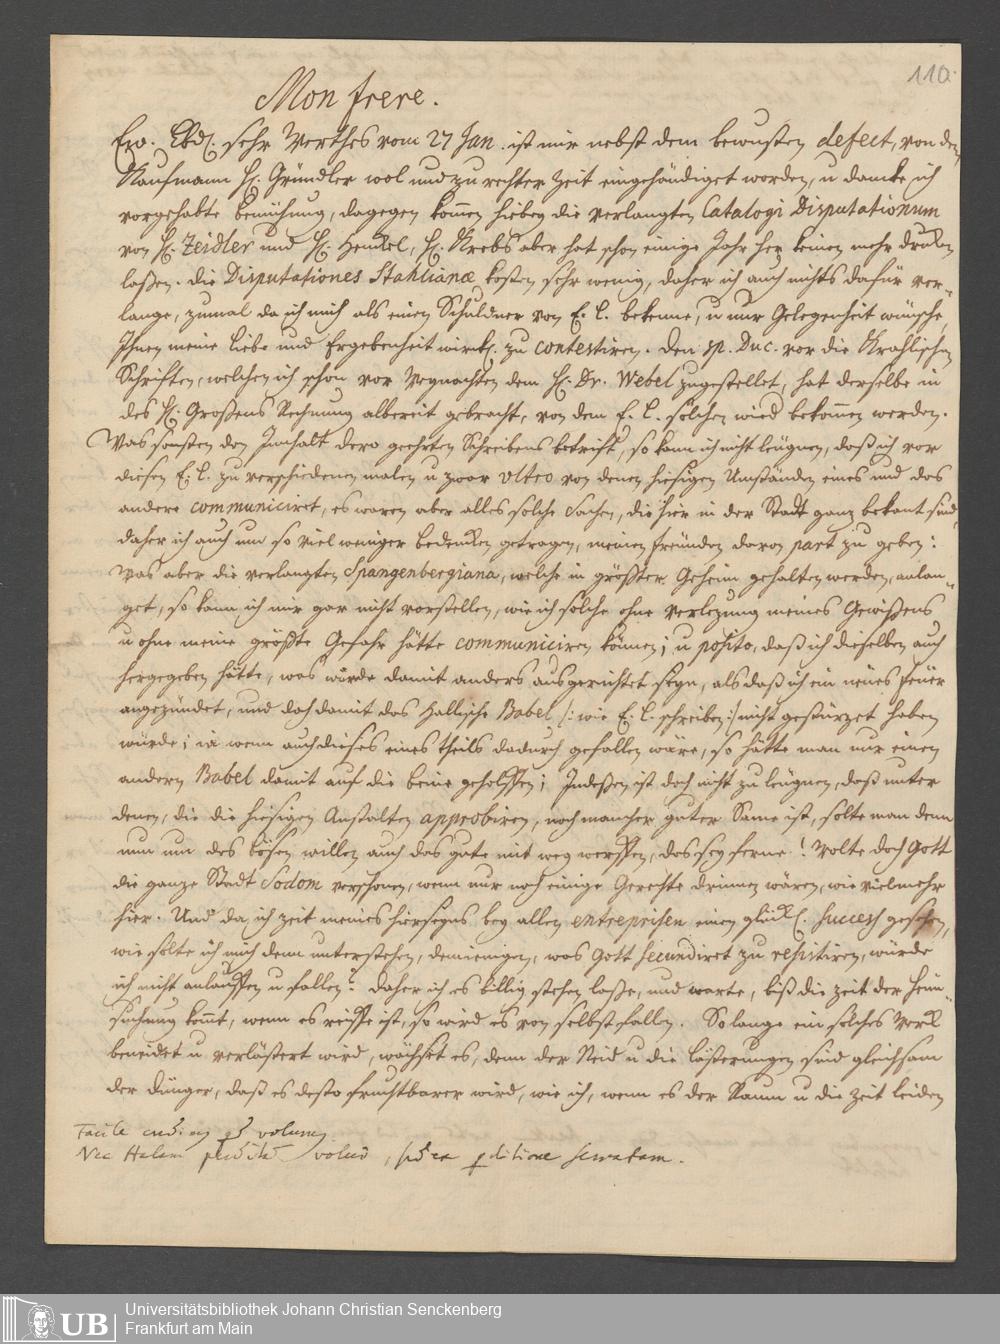 110.
Mon frere.
Ew. Lbd. sehr Werthes vom 27 Jan. ist mir nebst dem bewusten defect, von dem
Kaufmann H. Gründler wol und zu rechter Zeit eingehändiget worden, u dancke ich
vorgehabte bemühung, dagegen kom̄en hiebey die verlangten Catalogi Disputationum
von H. Zeidler und H. Henckel, H. Krebs aber hat schon einige Jahr her keinen mehr drucken
laßen. die Disputationes Stahlianæ kosten sehr wenig, daher ich auch nichts dafür ver-
lange, zumal da ich mich als einen Schuldner von E. L. bekenne, u nur Gelegenheit wünsche,
Ihnen meine Liebe und Ergebenheit wirckl. zu contestiren. den sp. Duc. vor die
Schriften, welchen ich schon vor Weynachten dem H. Dr. Webel zugestellet, hat derselbe in
des H. Großens Rechnung albereit gebracht, von dem E. L. solchen wird bekom̄en werden.
Was sonsten den Innhalt dero geehrten Schreibens betrift, so kann ich nicht leügnen, daß ich vor
diesen E. L. zu verschiedenen malen u zwar ultro von denen hiesigen Umständen eines und das
andere communiciret, es waren aber alles solche Sachen, die hier in der Stadt ganz bekant sind,
daher ich auch um so viel weniger bedencken getragen, meinen freunden davon part zu geben:
Was aber die verlangten Spangenbergiana, welche in größter Geheim gehalten werden, anlan-
get, so kann ich mir gar nicht vorstellen, wie ich solche ohne verlezung meines Gewißens
u ohne meine größte Gefahr hätte communiciren können; u posito, daß ich dieselben auch
hergegeben hätte, was würde damit anders ausgerichtet seyn, als daß ich ein neües feüer
angezündet, und doch damit das Hallische Babel /: wie E. L. schreiben :/ nicht gestürzet haben
würde; ia wenn auch dieses eines theils dadurch gefallen wäre, so hätte man nur einen
andern Babel damit auf die beine geholffen; Indeßen ist doch nicht zu leügnen, daß unter
denen, die die hiesigen Anstalten approbiren, noch mancher guter Same ist, solte man denn
nun um des bösen willen auch das gute mit weg werffen, das sey ferne! Wolte doch Gott
die ganze Stadt Sodom verschonen, wenn nur noch einige Gerechte drinnen wären, wie vielmehr
hier. Und da ich zeit meines hierseyns bey allen entreprisen einen glückl. success gesehen,
wie solte ich mich denn unterstehen, demienigen, was Gott secundiret zu resistiren, würde
ich nicht anlauffen u fallen? daher ich es billig stehen laße, und warte, biß die zeit der Heim-
suchung kom̄t, wenn es reiffe ist, so wird es von selbst fallen. So lange ein solches Werck
beneidet u verlästert wird, wächset es, denn der Neid u die Lästerungen sind gleichsam
der dünger, daß es desto fruchtbarer wird, wie ich, wenn es der Raum u die zeit leiden
Facile volumus
Nec Halam volo, servatam.
Universitätsbibliothek Johann Christian Senckenberg
Frankfurt am Main
UB